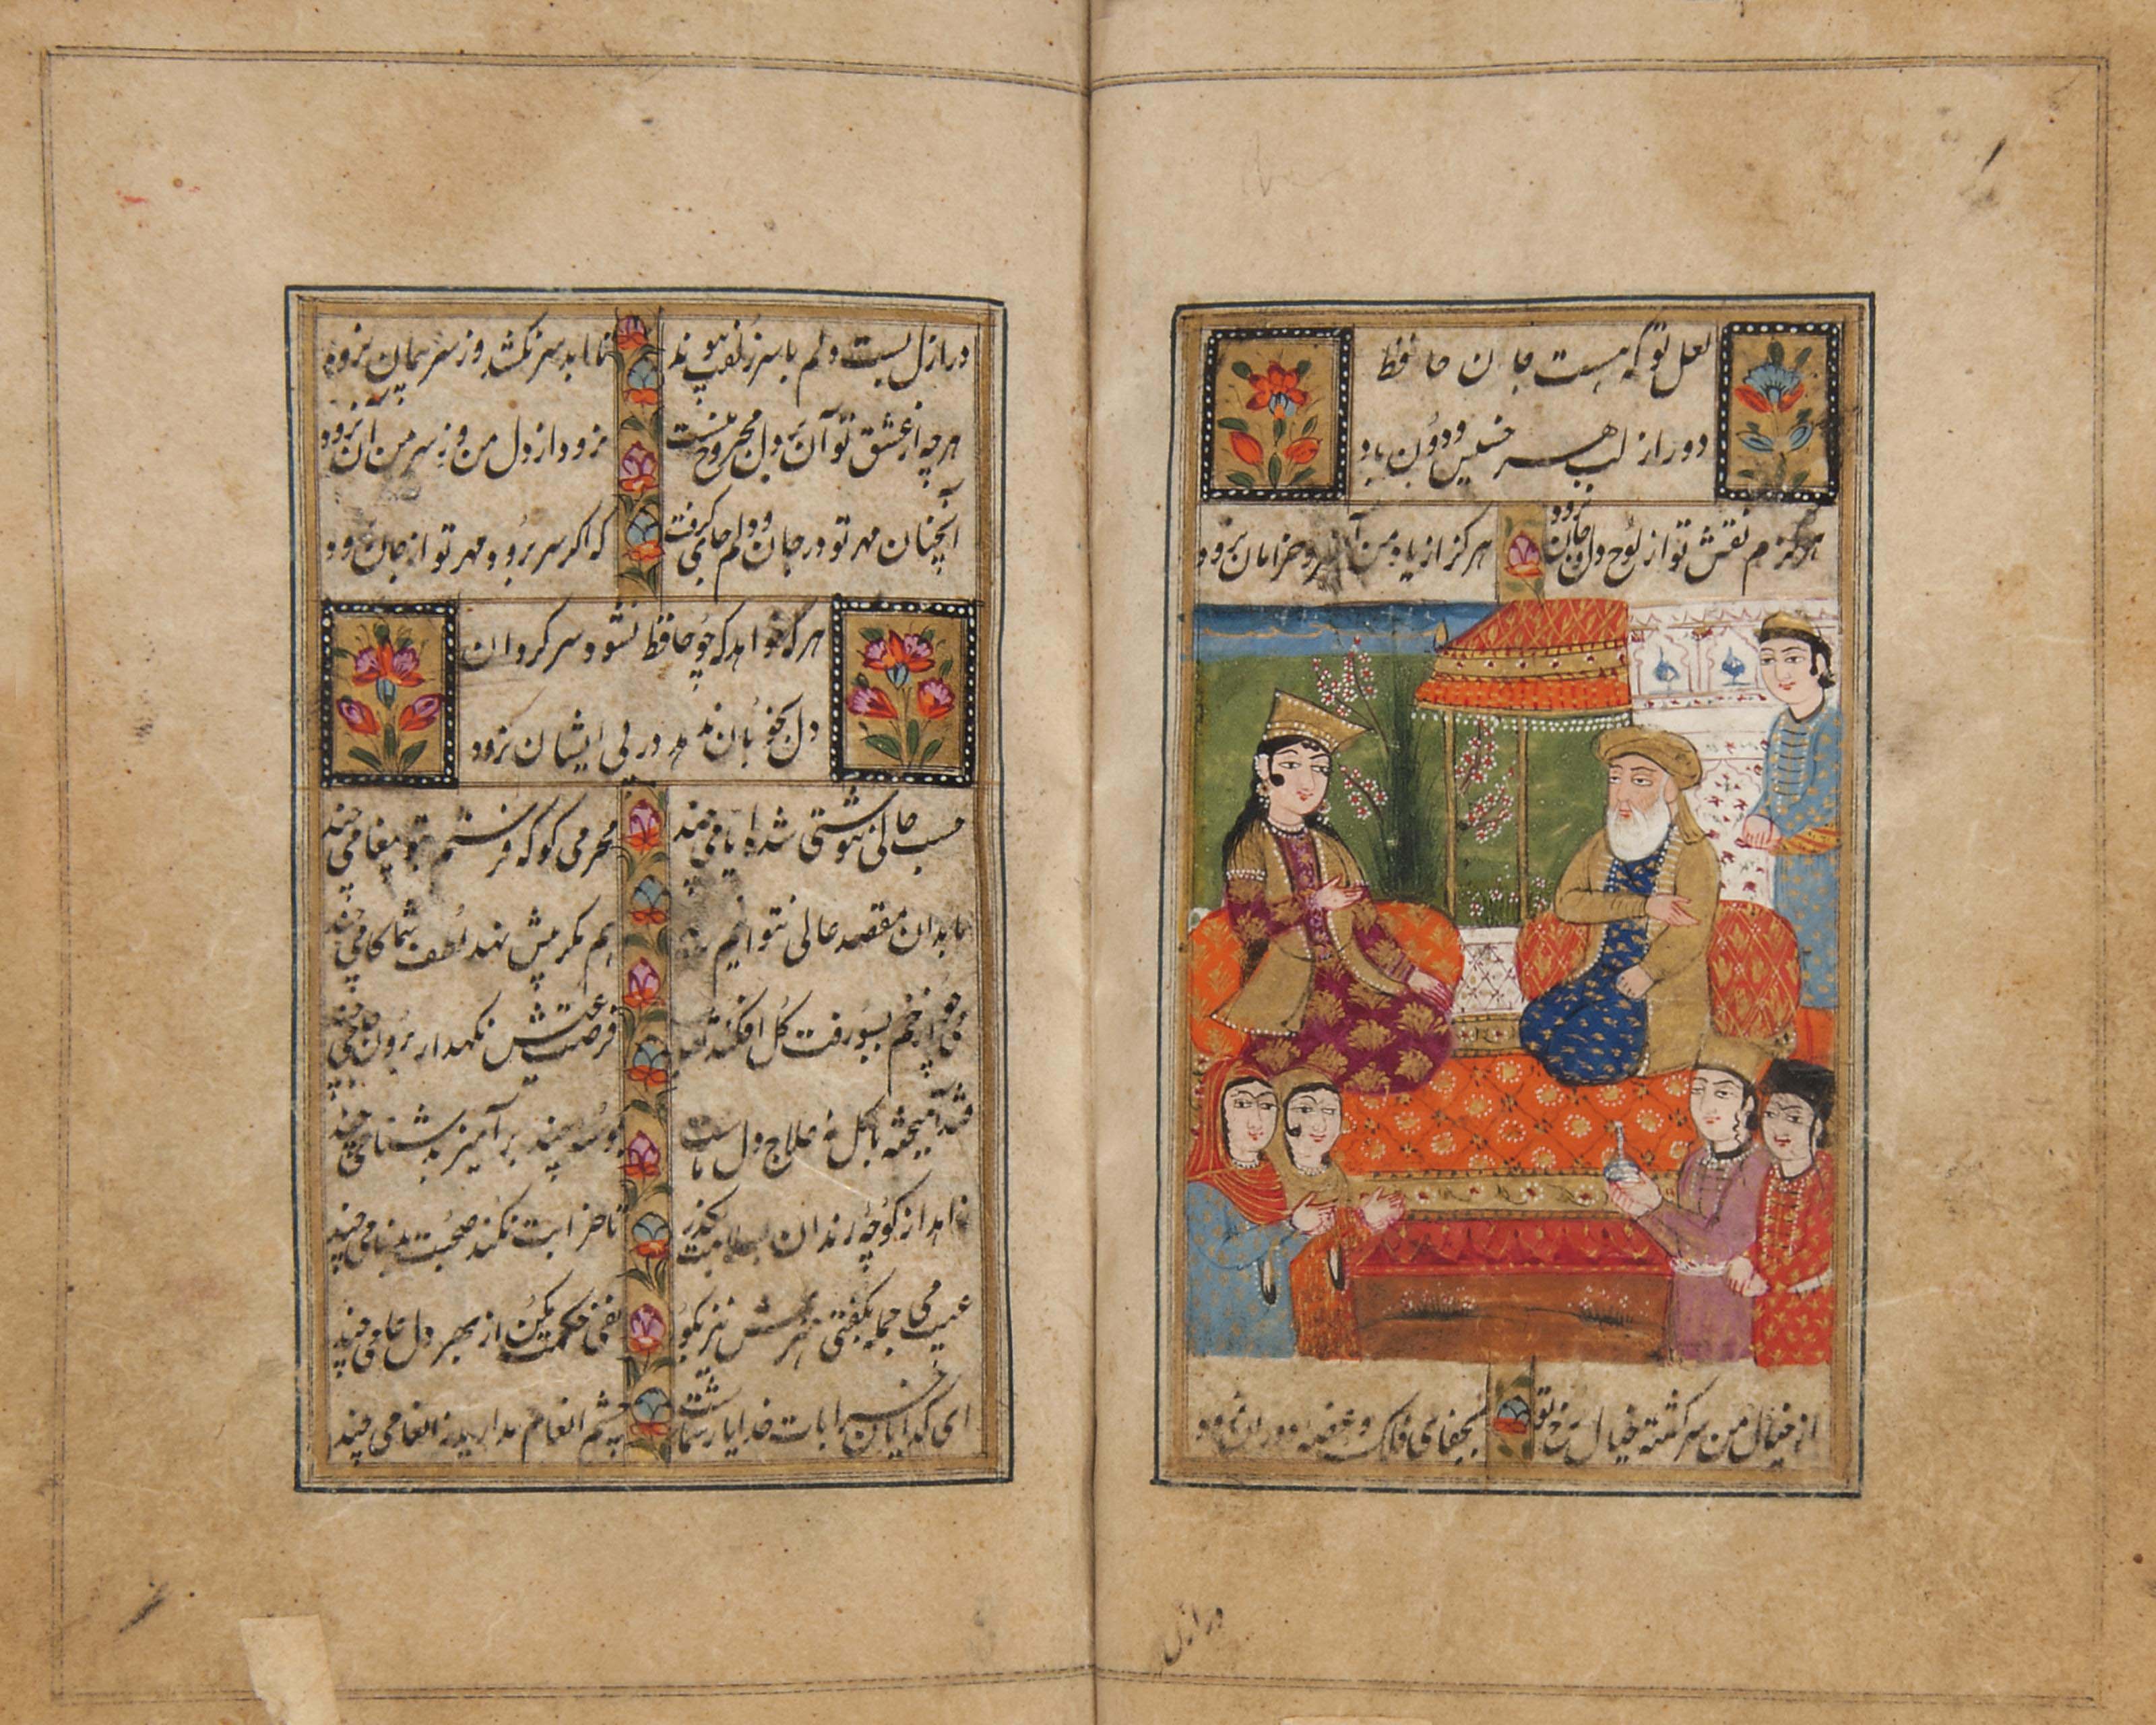 لعل تو که هست جان حافظ
دور از لب هر خسیس و دون باد
هرگزم نقش تو از لوح دل و جان نرود هرگز از یاد من آن سرو خرامان نرود
از خیال من سرگشته خیال رخ تو بجفای فلک و غصه دوران نرود
درازل
در ازل بست دلم با سر زلفت پیوند تا ابد سر نکشد وز سر پیمان نرود
هرچه از عشق تو آن بر دل مجروح منست نرود از دل من وز سر من آن نرود
آنچنان مهر تو در جان و دلم جای گرفت که اگر سر برود مهر تو از جان نرود
هر که خواهد که چو حافظ نشود سرگردان
دل بخوبان ندهد در پی ایشان نرود
حسب حالی ننوشتی شد ایامی چند محرمی کو که فرستم بتو پیغامی چند
ما بدان مقصد عالی نتوانیم رسید هم مگر پیش نهد لطف شما گامی چند
می چو از خم بسبو رفت گل افکند نقاب فرصت عیش نگهدار بزن جامی چند
قند آمیخته با گل نه علاج دل ماست بوسه چند برآمیز بدشنامی چند
زاهد از کوچه رندان بسلامت بگذر تا خرابت نکند صحبت بدنامی چند
عیب می جمله بگفتی هنرش نیز بگو نفی حکمت مکن از بهر دل عامی چند
ای گدایان خرابات خدا یار شماست چشم انعام مدارید ز انعامی چند